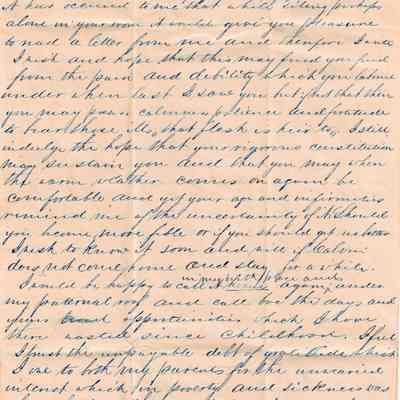 It has occurred to me that while sitting perhaps
alone in your room it would give you pleasure
to read a letter from me and therefore I write
I wish and hope that this may find you free
from the pain and debility which you labored
under when last I saw you but if not that then
you may possess calmness patience and fortitude
to bear those ills, that flesh is heir to, I still
indulge the hope that your vigorous constitution
may sustain you and that you may when
the warm weather comes on again be
comfortable and yet your age and infirmities
remind me of the uncertainty of it Should
you become more feble or if you should get no better
I wish to know it soon and will if Calvin
does not come home and stay for a while.
I would be happy to again under
my paternal roof and call back the days and
years and oppertunities which I have
there wasted since childhood. I feel
I trust the unpayable debt of gratitude which
I owe to both my parents for the unwearied
interest which in poverty and sickness was